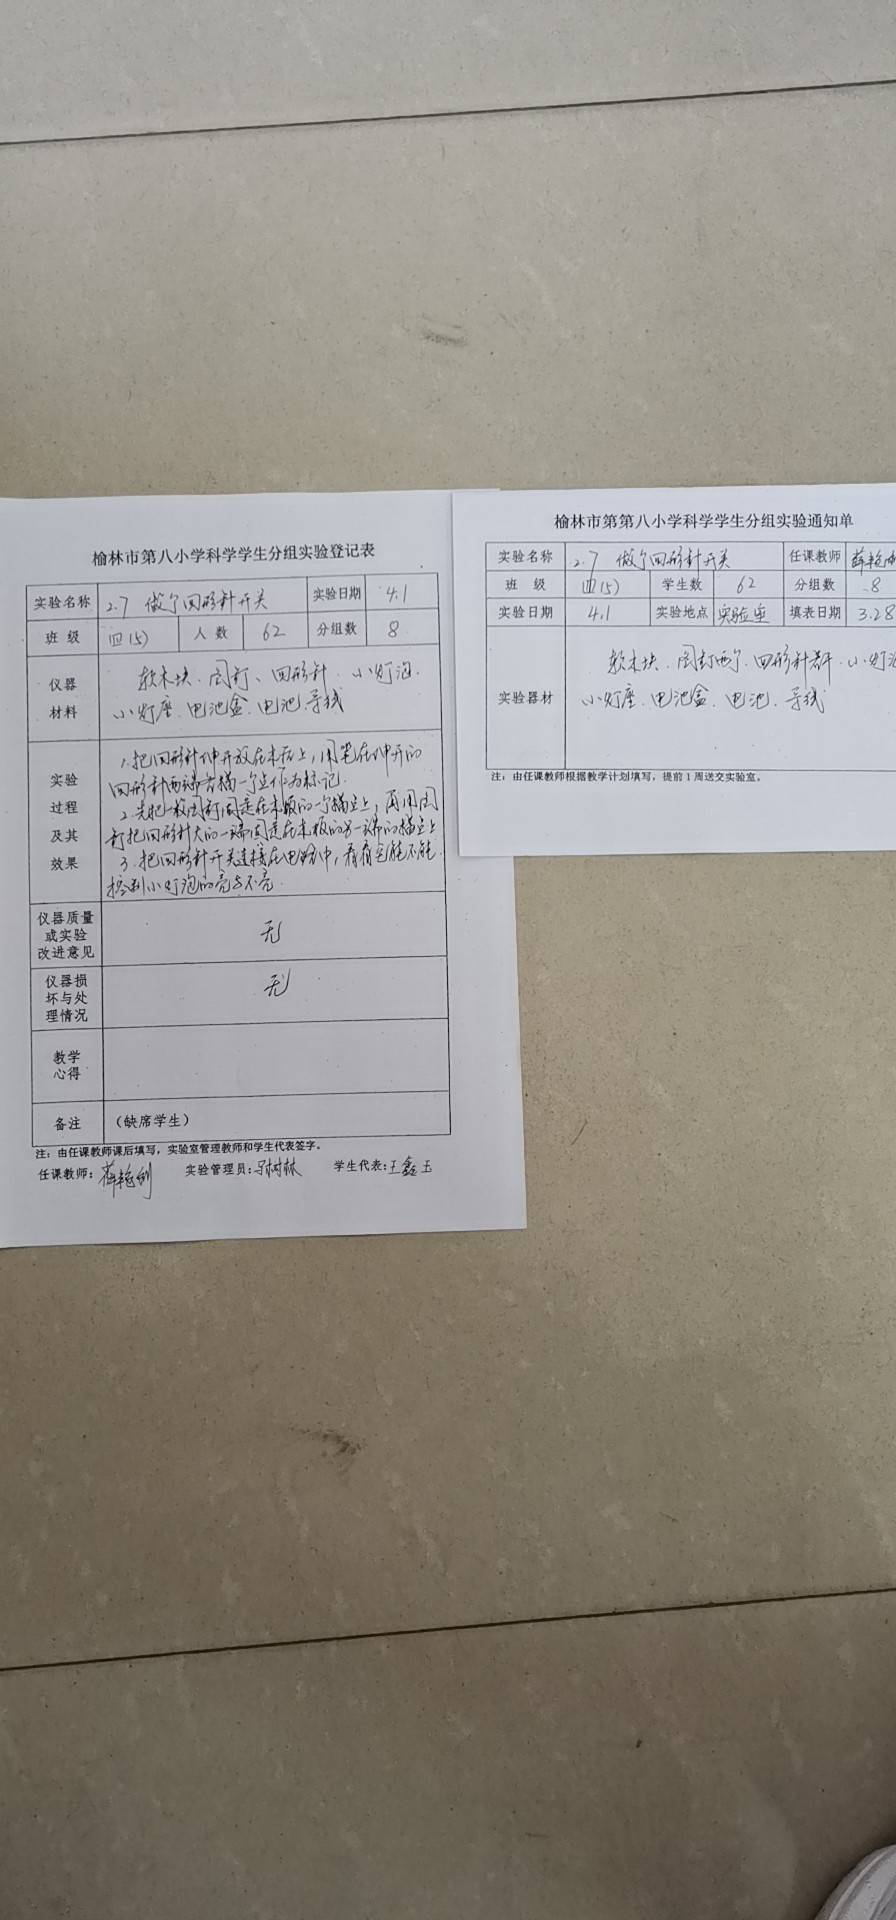 榆林市第八小学科学学生分组实验登记表
实验名称 2.7 做个回形针开关 实验日期 4.1
班 级 四(5) 人 数 62 分组数 8
仪器
材料
软木块、图钉、回形针、小灯泡、
小灯座、电池盒、电池、导线
实验
过程
及其
效果
1.把回形针伸开放在木板上,用笔在伸开的
回形针两端各描一个点作为标记.
2.先把一枚图钉固定在木板的一个描点上,再用图
钉把回形针大的一端固定在木板的另一端的描点上
3.把回形针开关连接在电路中,看看它能不能
控制小灯泡的亮与不亮.
仪器质量
或实验
改进意见
无
仪器损
坏与处
理情况
无
教学
心得
备注 (缺席学生)
注:由任课教师课后填写,实验室管理教师和学生代表签字。
任课教师: 实验管理员: 学生代表:王鑫玉
榆林市第第八小学科学学生分组实验通知单
实验名称 2.7 做个回形针开关 任课教师
班 级 四(5) 学生数 62 分组数 8
实验日期 4.1 实验地点 实验室 填表日期 3.28
实验器材
软木块、图钉两个、回形针 小灯泡
小灯座、电池盒、电池、导线
注:由任课教师根据教学计划填写,提前1周送交实验室。